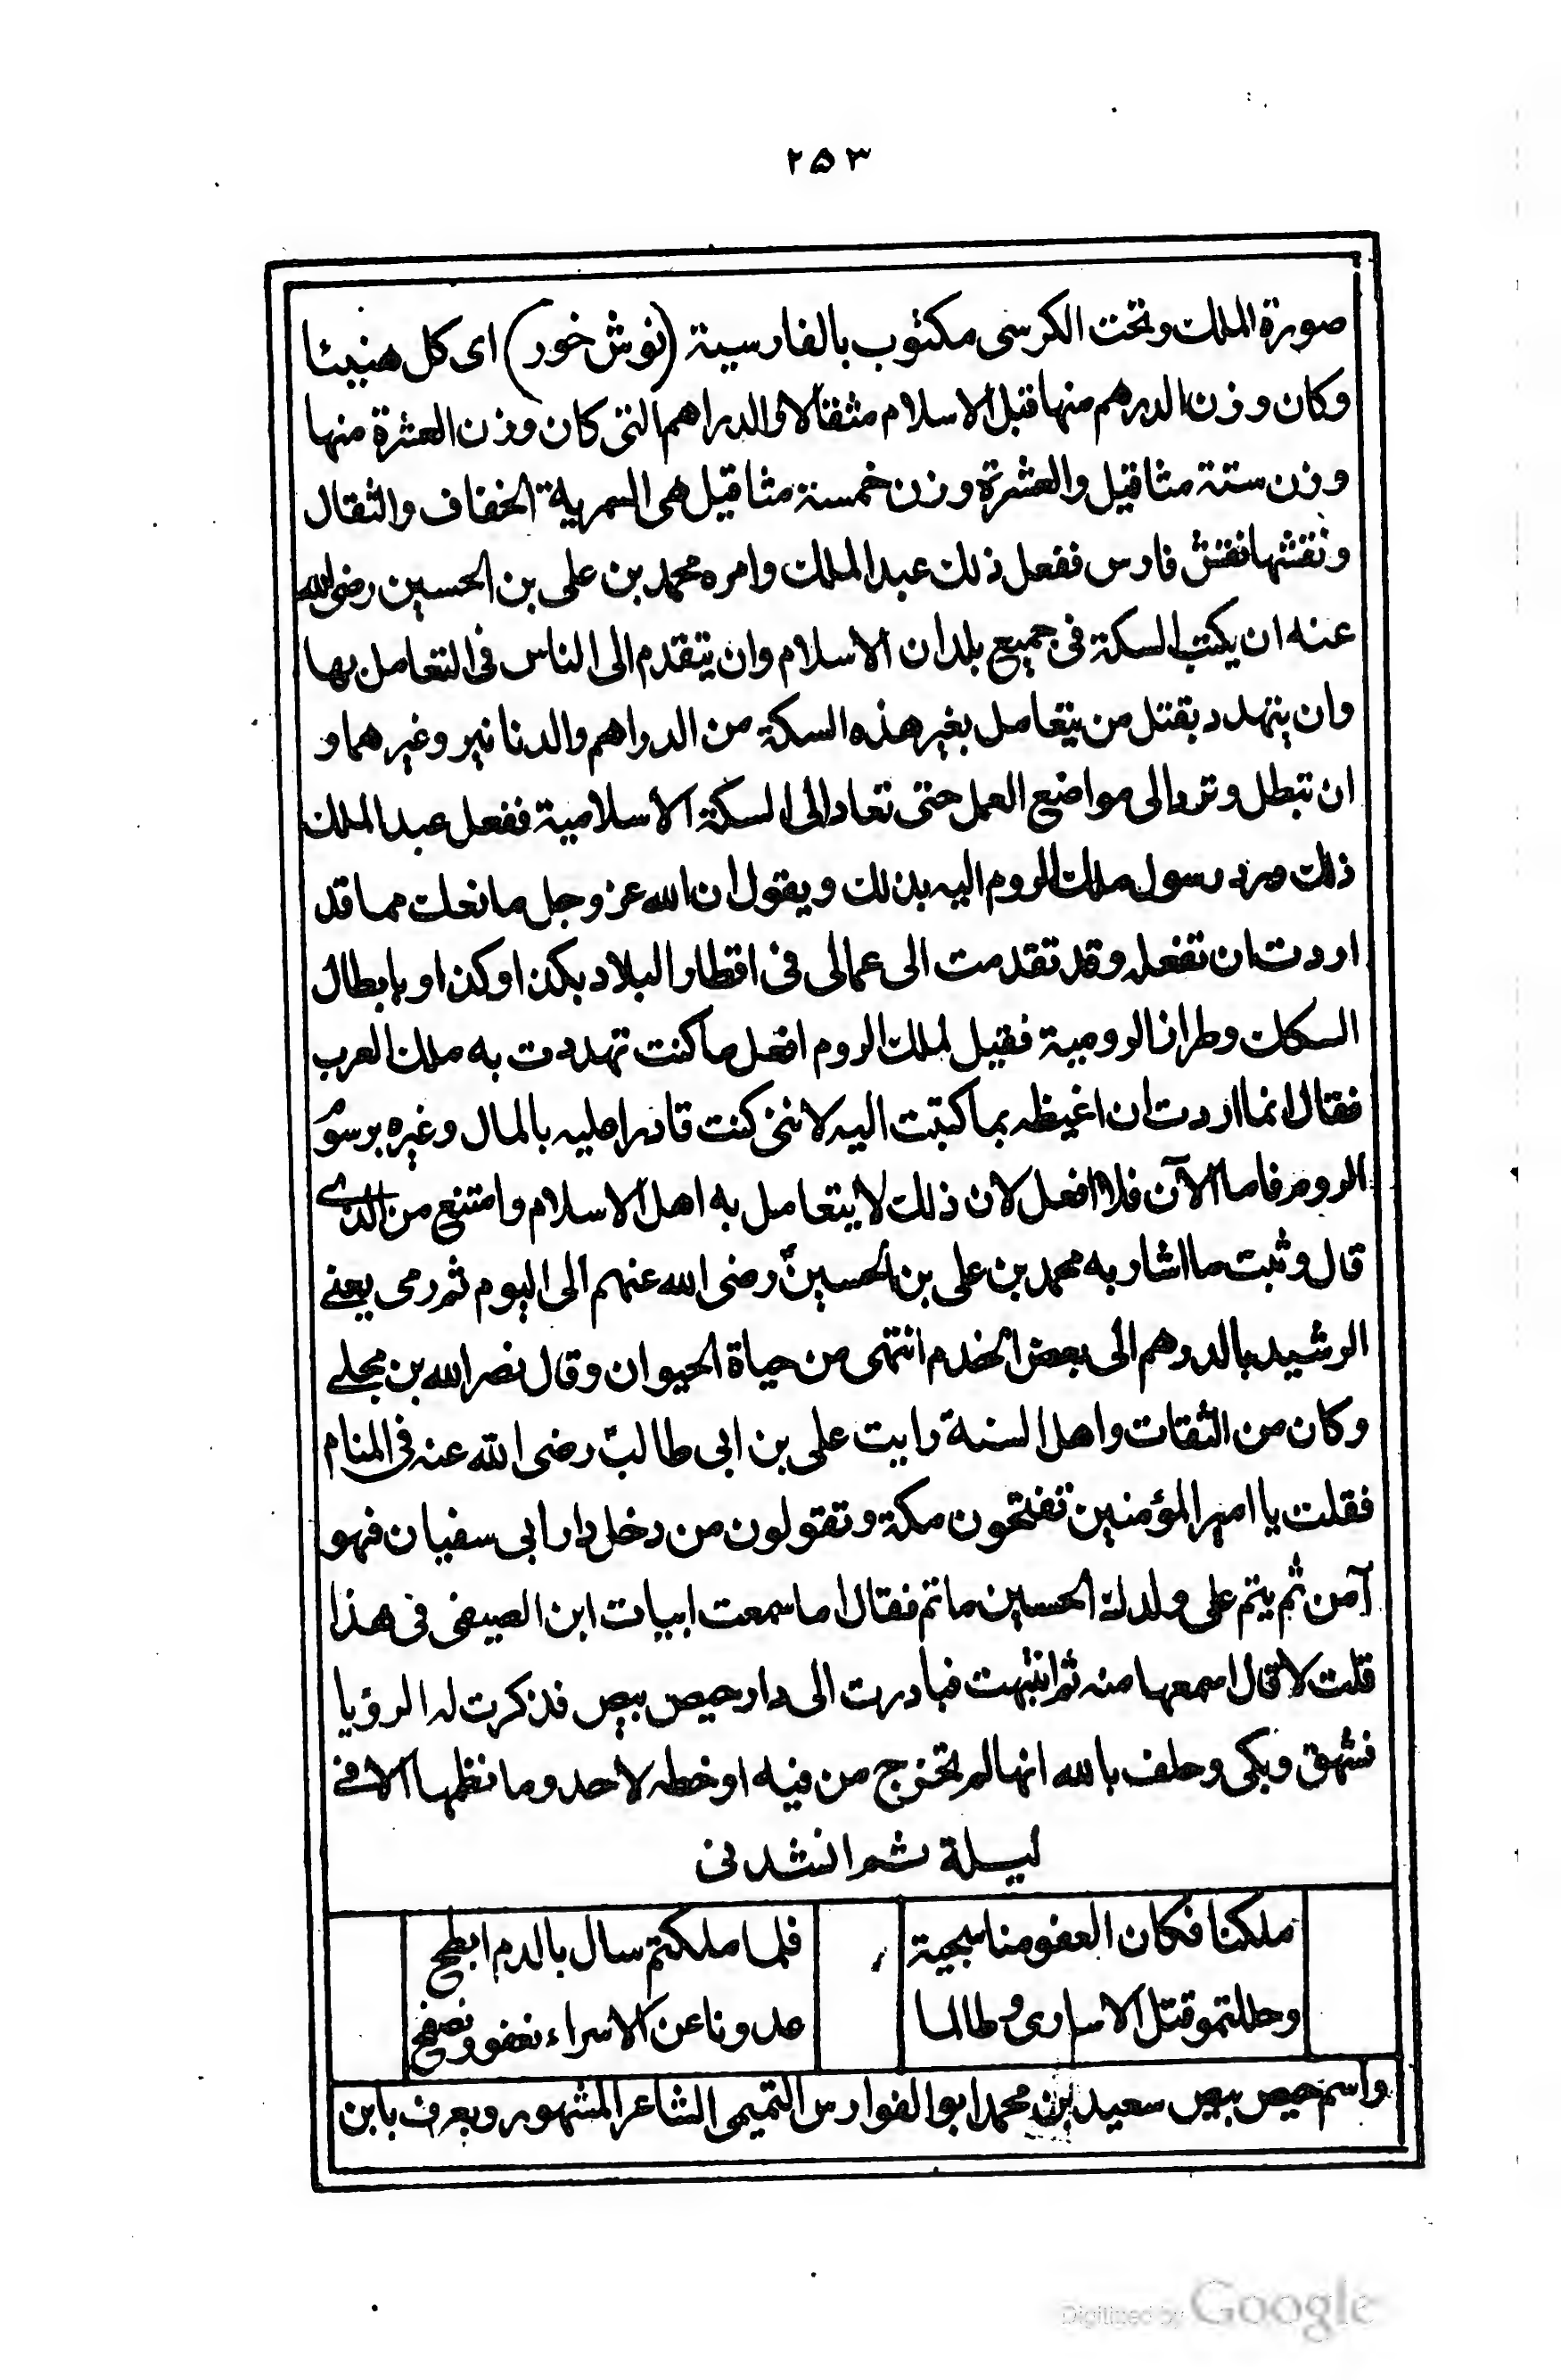 ٢٥٣
صورة الملك وتحت الكرسى مكتوب بالفارسية (نوش خور) اى كل هنيئا
وكان وزن الدرهم منها قبل الاسلام مثقالا والدراهم التى كان وزن العشرة منها
وزن ستة مثاقيل والعشرة وزن خمسة مثاقيل هى السمرية الخفاف والثقال
ونقشها نقش فارس ففعل ذلك عبد الملك وامره محمد بن على بن الحسين رضى الله
عنه ان يكتب السكة فى جميع بلدان الاسلام وان يتقدم الى الناس فى التعامل بها
وان يتهدد بقتل من يتعامل بغير هذه السكة من الدراهم والدنانير وغيرهما و
ان تبطل وترد الى مواضع العمل حتى تعاد الى السكة الاسلامية ففعل عبد الملك
ذلك ورد رسول ملك الروم اليه بذلك ويقول ان الله عز وجل مانعك مما قد
اردت ان تفعله وقد تقدمت الى عمالى فى اقطار البلاد بكذا وكذا وبابطال
السكك وطرازنا الرومية فقيل لملك الروم افعل ما كنت تهددت به ملك العرب
فقال انما اردت ان اغيظه بما كتبت اليه لاننى كنت قادرا عليه بالمال وغيره برسوم
الروم فاما الآن فلا افعل لان ذلك لا يتعامل به اهل الاسلام وامتنع من الذى
قال وثبت ما اشار به محمد بن على بن الحسين رضى الله عنهم الى اليوم ثم رمى يعنے
الرشيد بالدرهم الى بعض الخدم انتهى من حياة الحيوان وقال نصر الله بن مجلے
وكان من الثقات واهل السنة رايت على بن ابى طالب رضى الله عنه فى المنام
فقلت يا امير المؤمنين تفتحون مكة وتقولون من دخل دار ابى سفيان فهو
آمن ثم يتم على ولدك الحسين ما تم فقال اما سمعت ابيات ابن الصيفى فى هذا
قلت لا قال اسمعها منه ثم انتبهت فبادرت الى دار حيص بيص فذكرت له الرؤيا
فشهق وبكى وحلف بالله انها لم تخرج من فيه او خطه لاحد وما نظمها الا فے
ليلة ثم انشدنى
ملكنا فكان العفو منا سجية فلما ملكتم سال بالدم ابطح
وحللتمو قتل الاسارى وطالما عدونا عن الاسراء نعفو ونصفح
واسم حيص بيص سعيد بن محمد ابو الفوارس التميمى الشاعر المشهور ويعرف بابن
Digitized by Google